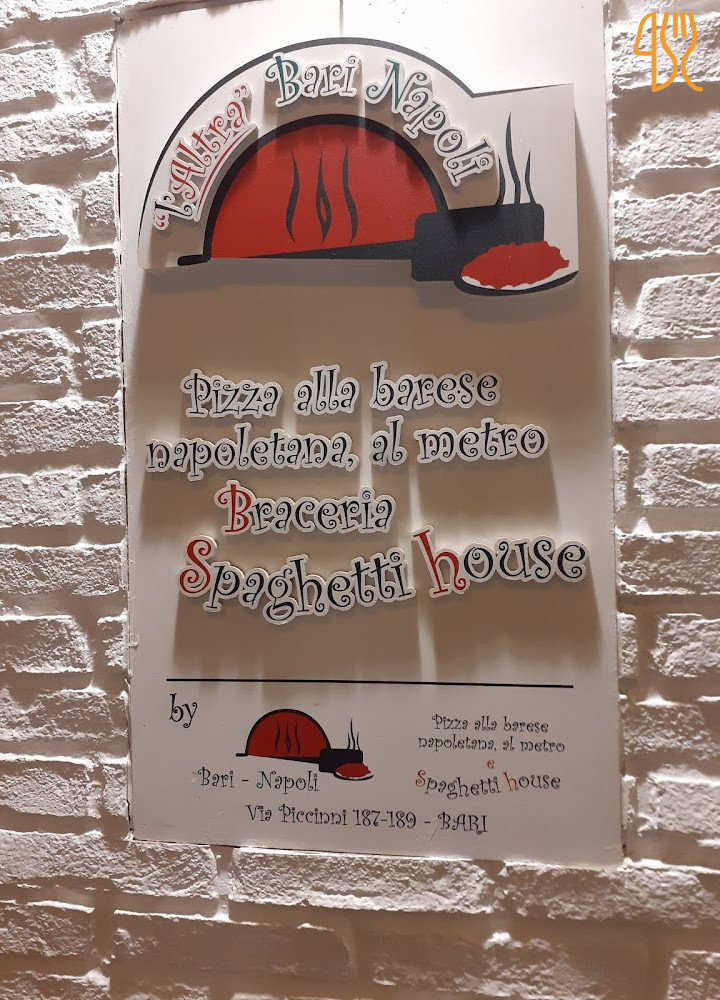 "l'Altra" Bari Napoli
Pizza alla barese
napoletana, al metro
Braceria
Spaghetti house
by
Bari - Napoli
Pizza alla barese
napoletana, al metro
e
Spaghetti house
Via Piccinni 187-189 - BARI